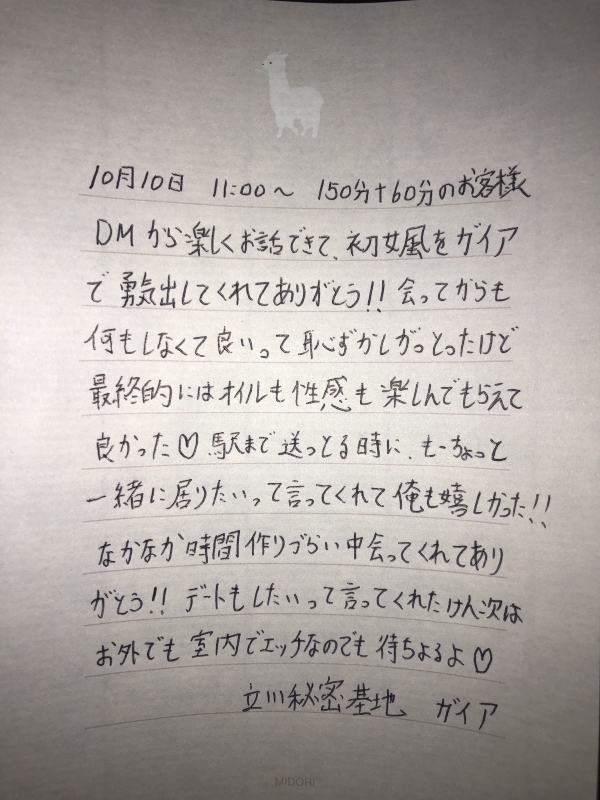 10月10日 11:00〜 150分+60分のお客様
DMから楽しくお話できて、初女風をガイア
で勇気出してくれてありがとう!! 会ってからも
何もしなくて良いって恥ずかしがっとったけど
最終的にはオイルも性感も楽しんでもらえて
良かった♡ 駅まで送っとる時に、もーちょっと
一緒に居りたいって言ってくれて俺も嬉しかった!!
なかなか時間作りづらい中会ってくれてあり
がとう!! デートもしたいって言ってくれたけん次は
お外でも室内でエッチなのでも待ちよるよ♡
立川秘密基地 ガイア
MIDORI